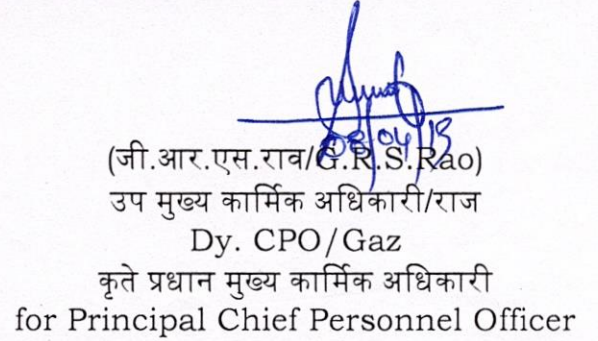 08/04/19
(जी.आर.एस.राव/G.R.S.Rao)
उप मुख्य कार्मिक अधिकारी/राज
Dy. CPO/Gaz
कृते प्रधान मुख्य कार्मिक अधिकारी
for Principal Chief Personnel Officer